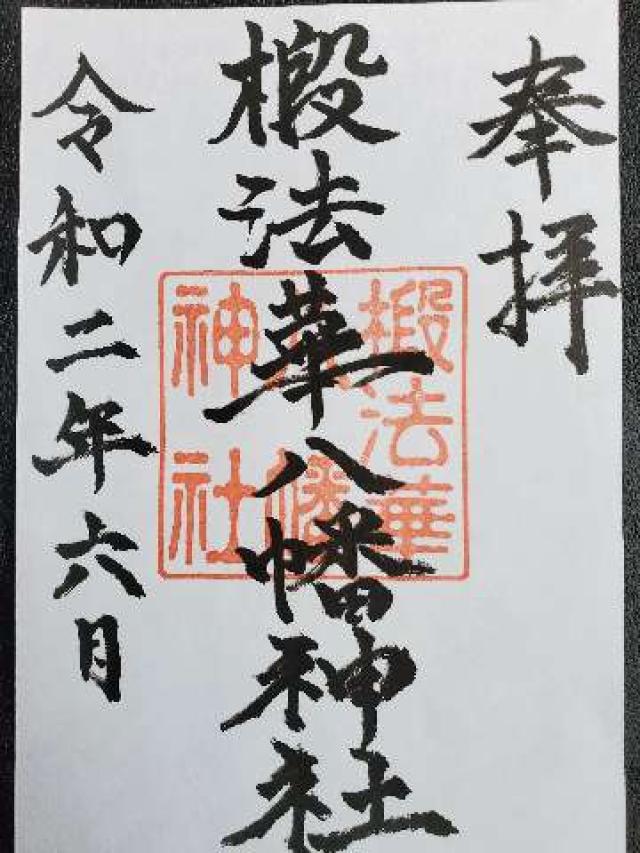 奉拝
椴法華八幡神社
椴法華
八幡
神社
令和二年六月